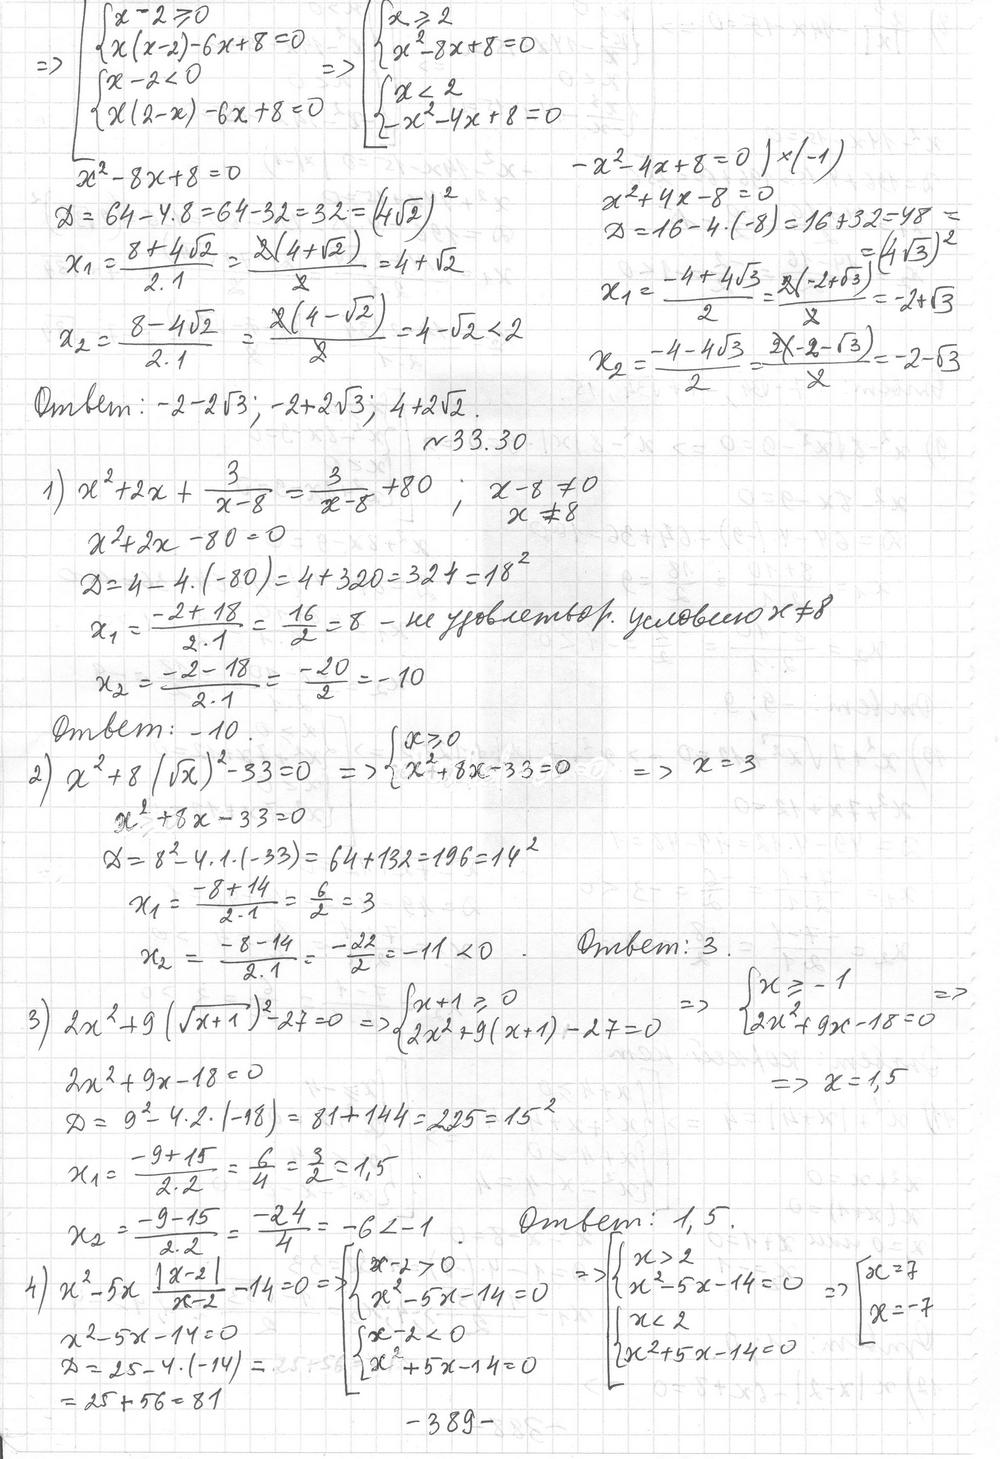 => [ { x-2⩾0 => [ { x⩾2
{ x(x-2)-6x+8=0 { x²-8x+8=0
{ x-2<0 { x<2
{ x(2-x)-6x+8=0 { -x²-4x+8=0
x²-8x+8=0
D=64-4.8=64-32=32=(4√2)²
x₁ = (8+4√2)/(2.1) = (2(4+√2))/2 = 4+√2
x₂ = (8-4√2)/(2.1) = (2(4-√2))/2 = 4-√2<2
-x²-4x+8=0 ) ×(-1)
x²+4x-8=0
D=16-4.(-8)=16+32=48 =
=(4√3)²
x₁ = (-4+4√3)/2 = (2(-2+√3))/2 = -2+√3
x₂ = (-4-4√3)/2 = (2(-2-√3))/2 = -2-√3
Ответ: -2-2√3; -2+2√3; 4+2√2.
~33.30
1) x²+2x + 3/(x-8) = 3/(x-8) +80 ; x-8≠0
x≠8
x²+2x-80=0
D=4-4.(-80)=4+320=324=18²
x₁ = (-2+18)/(2.1) = 16/2 = 8 - не удовлетвор. условию x≠8
x₂ = (-2-18)/(2.1) = -20/2 = -10
Ответ: -10.
2) x²+8(√x)²-33=0 => { x⩾0
{ x²+8x-33=0 => x=3
x²+8x-33=0
D=8²-4.1.(-33)=64+132=196=14²
x₁ = (-8+14)/(2.1) = 6/2 = 3
x₂ = (-8-14)/(2.1) = -22/2 = -11<0. Ответ: 3.
3) 2x²+9(√(x+1))²-27=0 => { x+1⩾0 => { x⩾-1 =>
{ 2x²+9(x+1)-27=0 { 2x²+9x-18=0
2x²+9x-18=0
=> x=1,5
D=9²-4.2.(-18)=81+144=225=15²
x₁ = (-9+15)/(2.2) = 6/4 = 3/2 = 1,5
x₂ = (-9-15)/(2.2) = -24/4 = -6<-1. Ответ: 1,5.
4) x²-5x |x-2|/(x-2) -14=0 => [ { x-2>0 => [ { x>2 => [ x=7
{ x²-5x-14=0 { x²-5x-14=0 x=-7
{ x-2<0 { x<2
{ x²+5x-14=0 { x²+5x-14=0
x²-5x-14=0
D=25-4.(-14)=
=25+56=81
-389-